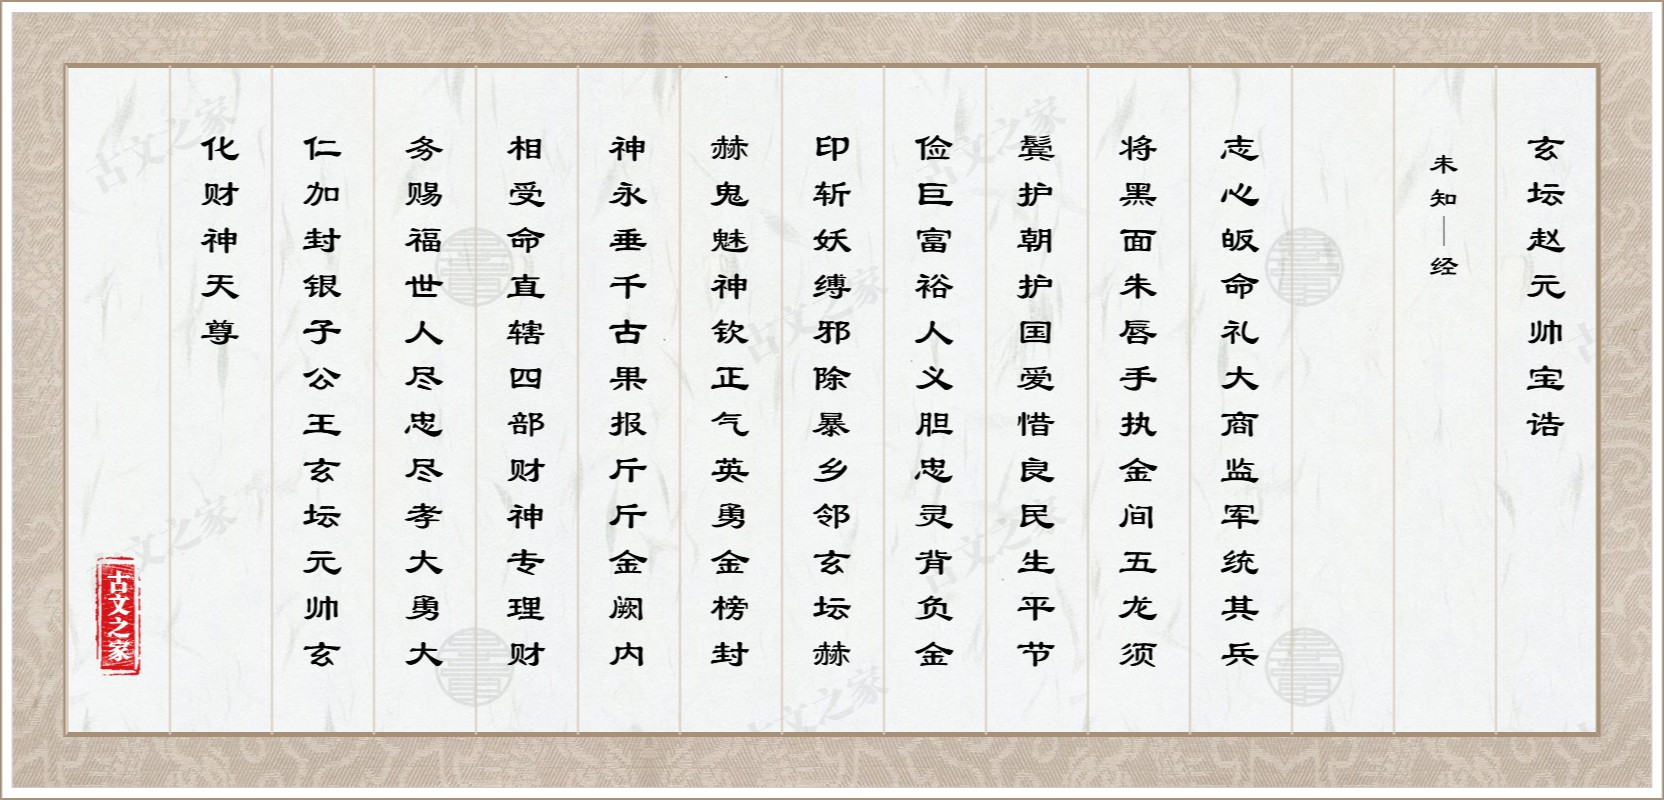 玄坛赵元帅宝诰
未知—经
志心皈命礼大商监军统其兵
将黑面朱唇手执金间五龙须
鬓护朝护国爱惜良民生平节
俭巨富裕人义胆忠灵背负金
印斩妖缚邪除暴乡邻玄坛赫
赫鬼魅神钦正气英勇金榜封
神永垂千古果报斤斤金阙内
相受命直辖四部财神专理财
务赐福世人尽忠尽孝大勇大
仁加封银子公王玄坛元帅玄
化财神天尊
古文之家